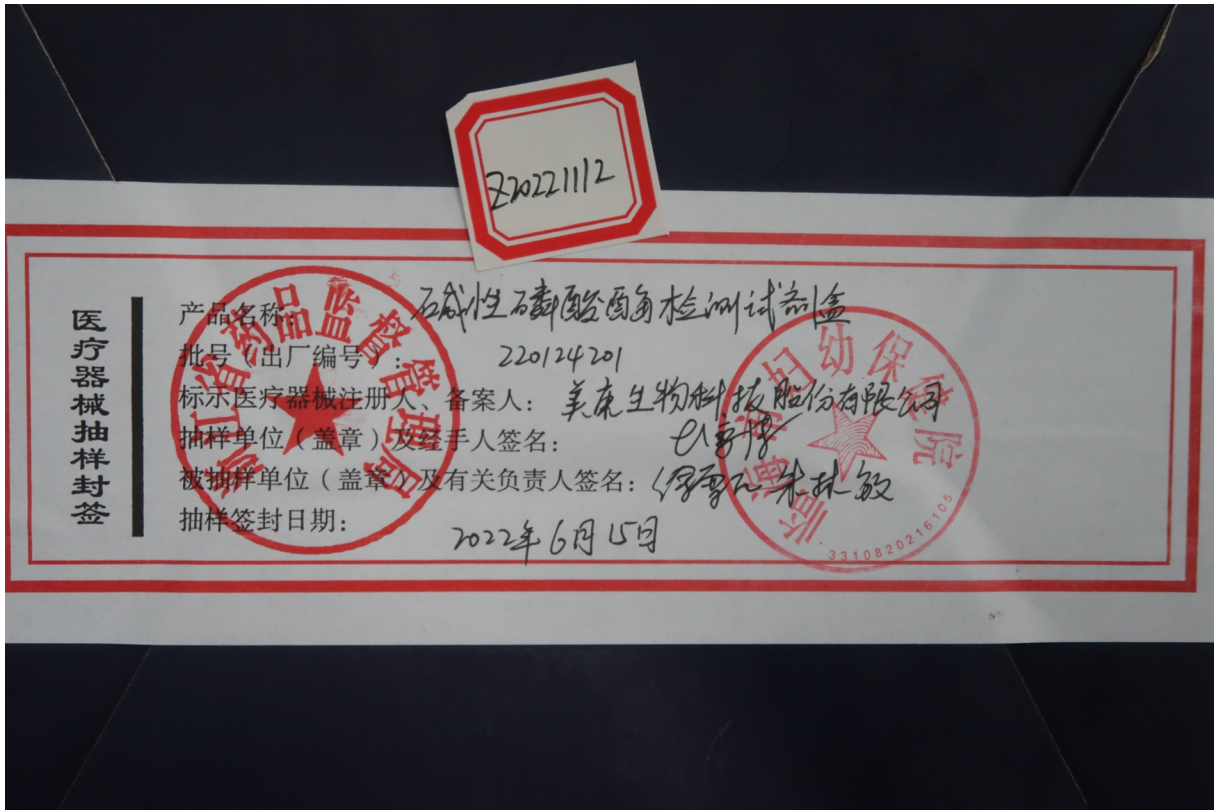 Z20221112
医疗器械抽样封签
产品名称: 碱性磷酸酶检测试剂盒
批号(出厂编号): 220124201
标示医疗器械注册人、备案人: 美康生物科技股份有限公司
抽样单位(盖章)及经手人签名:
被抽样单位(盖章)及有关负责人签名: 朱林敏
抽样签封日期: 2022年6月15日
浙江省药品监督管理局
临海市妇幼保健院
3310820216105